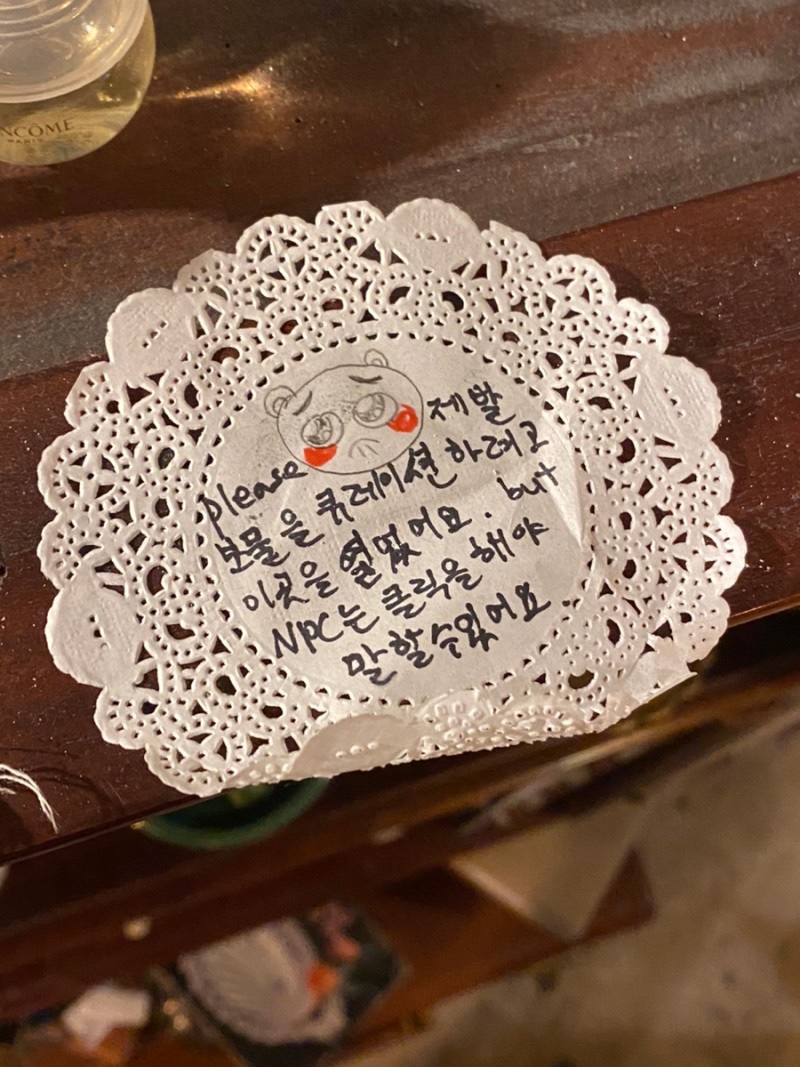 LANCÔME
PARIS
제발
please
보물을 큐레이션 하려고
이곳을 열었어요. but
NPC는 클릭을 해야
말할수있어요